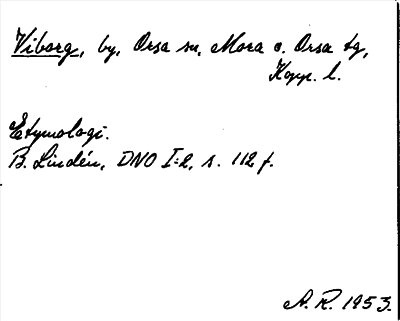 Viborg, by, Orsa sn, Mora o. Orsa tg,
Kopp. l.
Etymologi.
B. Lindén, DNO I:2, s. 112 f.
A. R. 1953.